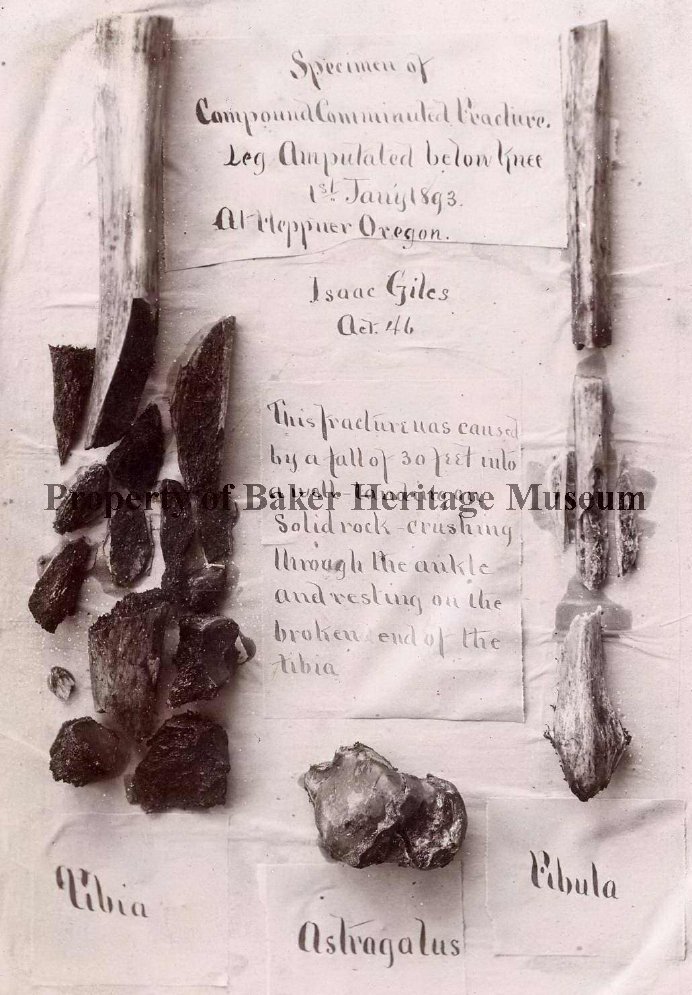 Specimen of
Compound Comminuted Fracture.
Leg Amputated below Knee
1st Jan'y 1893.
At Heppner Oregon.
Isaac Giles
Aet. 46
This fracture was caused
by a fall of 30 feet into
a well landing on
Solid rock - crushing
through the ankle
and resting on the
broken end of the
tibia
Property of Baker Heritage Museum
Tibia
Astragalus
Fibula